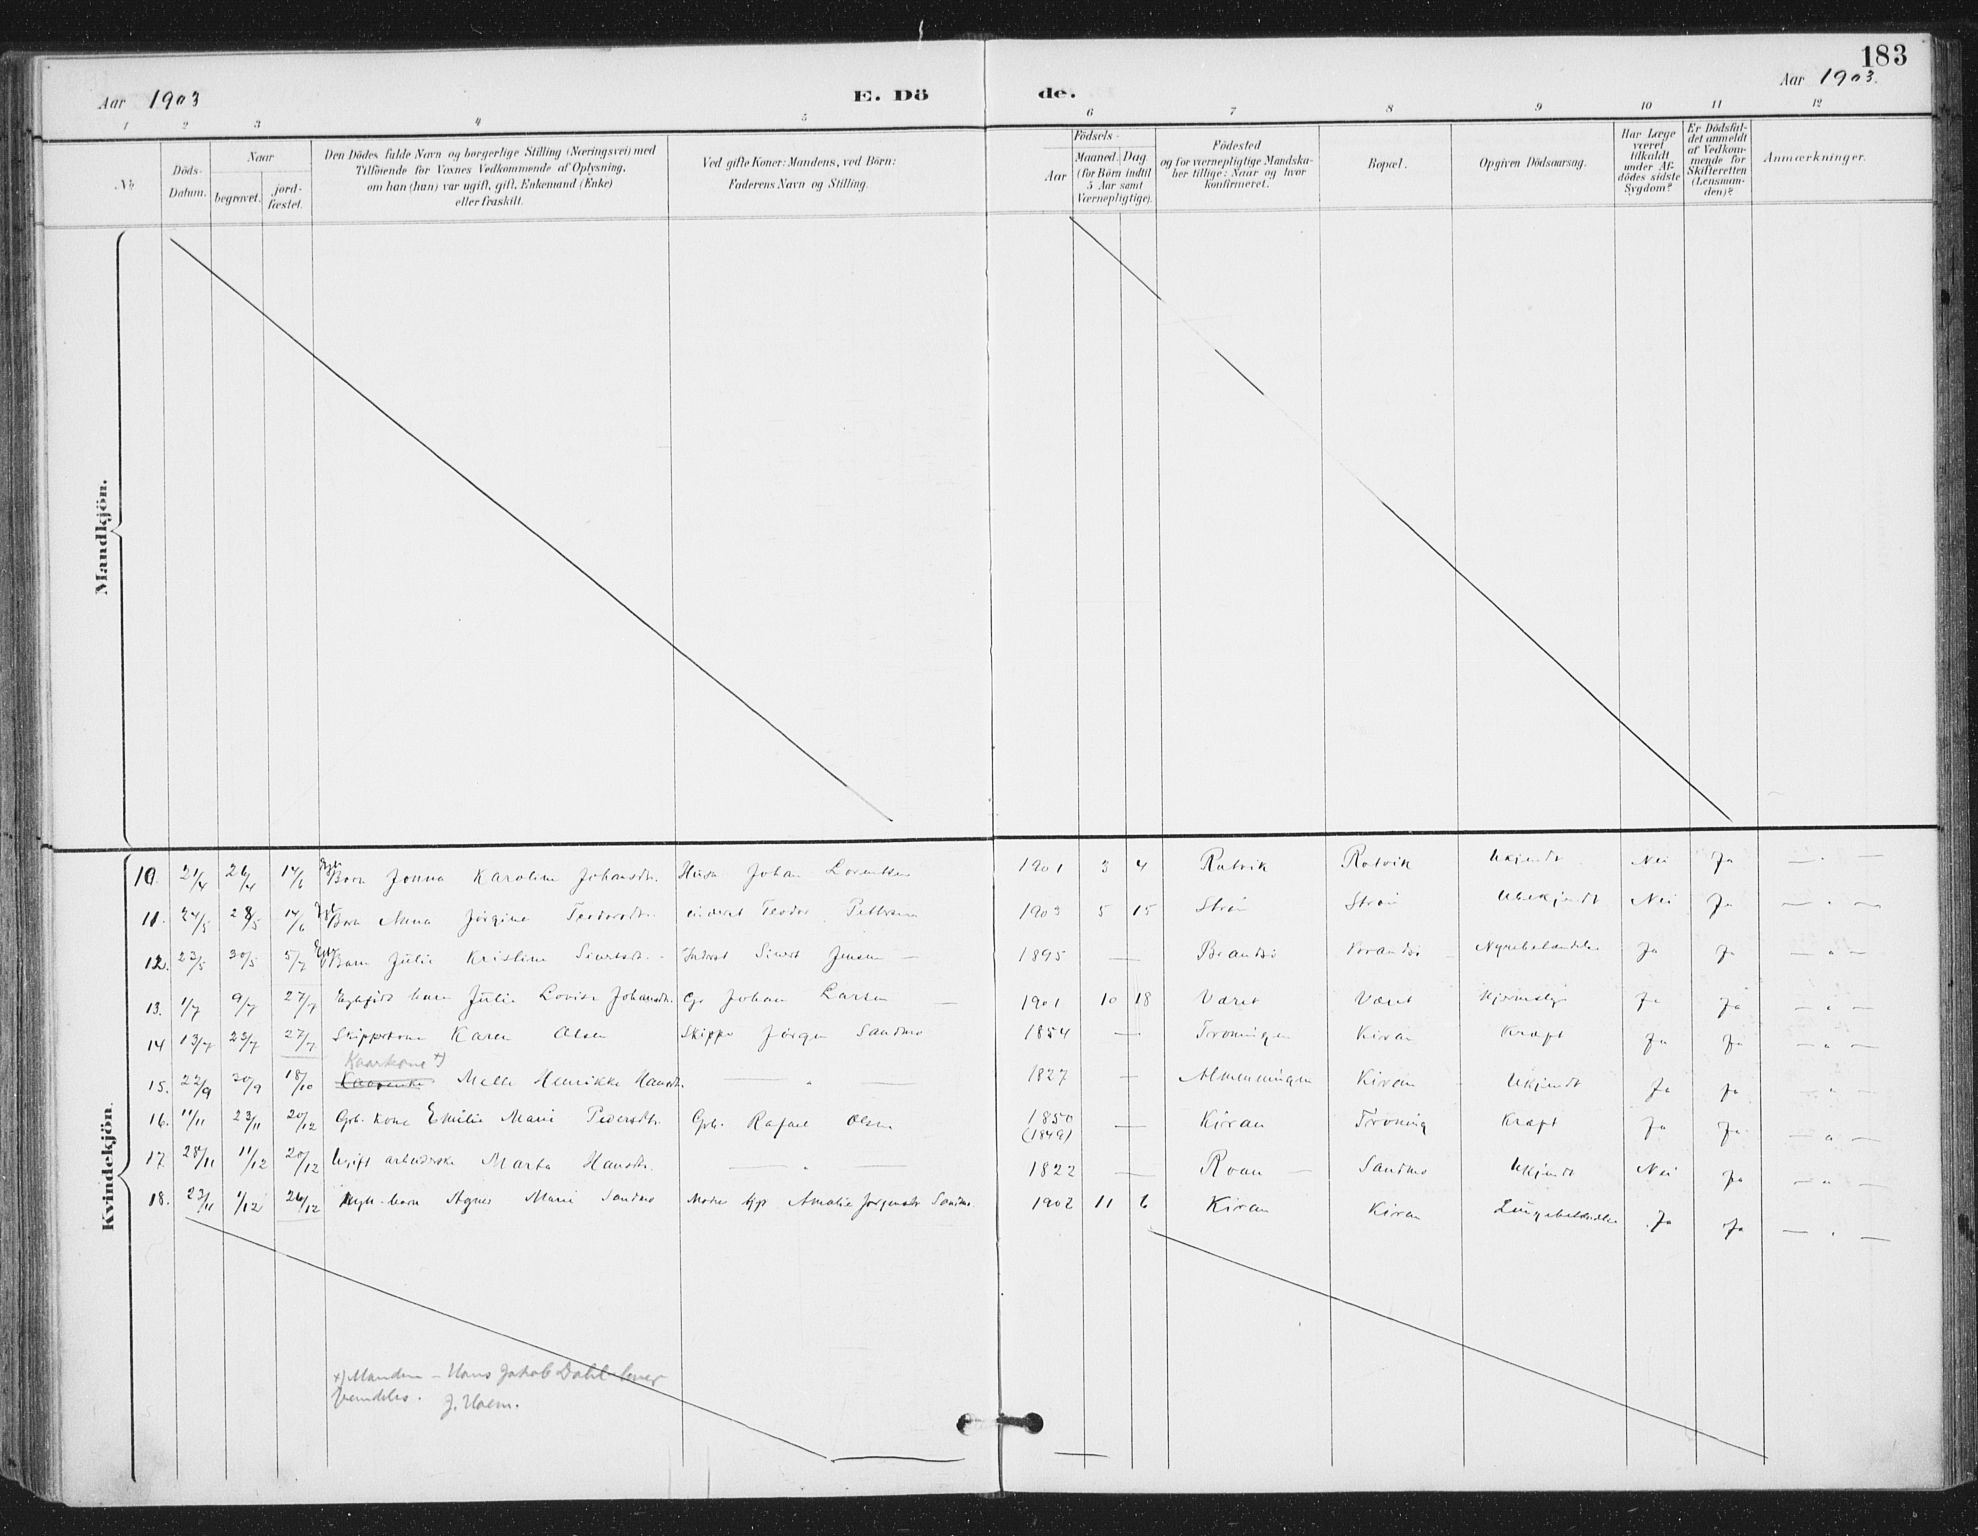 183
Aar 1903
E. Dö de.
Aar 1903.
1 2 3 4 5 6 7 8 9 10 11 12
No.
Döds-Datum.
Naar
begravet.
jord-fæstet.
Den Dödes fulde Navn og borgerlige Stilling (Næringsvei) med
Tilföiende for Voxnes Vedkommende af Oplysning,
om han (hun) var ugift, gift, Enkemand (Enke)
eller fraskilt.
Ved gifte Koner: Mandens, ved Börn:
Faderens Navn og Stilling.
Födsels-
Aar
Maaned. Dag
(for Börn indtil
5 Aar samt
Værnepligtige).
Födested
og for værnepligtige Mandska-
ber tillige: Naar og hvor
konfirmeret.
Bopæl.
Opgiven Dödsaarsag.
Har Læge
været
tilkaldt
under Af-
dödes sidste
Sygdom?
Er Dödsfal-
det anmeldt
af Vedkom-
mende for
Skifteretten
(Lensman-
den)?
Anmærkninger.
Mandkjön.
Kvindekjön.
10. 21/4 26/4 14/6 Barn Jonna Karoline Johansdtr. Husm Johan Lorentsen 1901 3 4 Ratvik Ratvik Ukjendt Nei Ja — " —
11. 24/5 28/5 14/6 Barn Anna Jörgine Teodorsdtr. Teodor Pettersen 1903 5 15 Ubekjendt Nei Ja — " —
12. 23/5 30/5 5/7 Barn Julie Kristine Sivertsdtr. Inderst Sivert Jensen — 1895 — Brandsö Brandsö Nyrebetændelse Ja Ja — " —
13. 1/7 9/7 27/7 barn Julie Lovise Johansdtr. Johan Larsen — 1901 10 18 Været Været Ja Ja — " —
14 13/7 23/7 27/7 Skipperkone Karen Olsen Skipper Jörgen Sandmo 1854 — Terningen Kiran Kræft Ja Ja — " —
Kaarkone +)
15. 22/9 30/9 18/10 Kaarenke Melle Henrikke Hansdtr. — " — 1827 — Almenningen Kiran Ukjendt Ja Ja — " —
16. 11/11 23/11 20/12 Grb. kone Emilie Marie Pedersdtr. Grb. Rafael Olsen 1850 (1849) — Kiran Terning Kræft Ja Ja — " —
17. 28/11 11/12 20/12 Ugift arbeiderske Marta Hansdtr. — " — 1822 — Roan — Sandmo Ukjendt Nei Ja — " —
18. 23/11 1/12 26/12 barn Agnes Marie Sandmo Moder Amalie Jörgensdtr Sandmo 1902 11 6 Kiran Kiran Lungebetændelse Ja Ja — " —
+) Manden – Hans Jakob Dahl lever
fremdeles. J. Hoem.